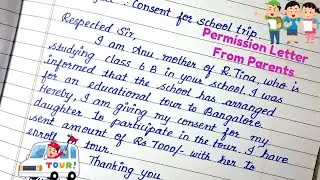 : Consent for school trip
Respected Sir,
I am Anu, mother of R. Tina, who is
studying class 6 B in your school. I was
informed that the school has arranged
for an educational tour to Bangalore.
Hereby, I am giving my consent for my
daughter to participate in the tour. I have
sent amount of Rs.7000/- with her to
enroll tour.
Thanking you
Permission Letter
From Parents
TOUR!